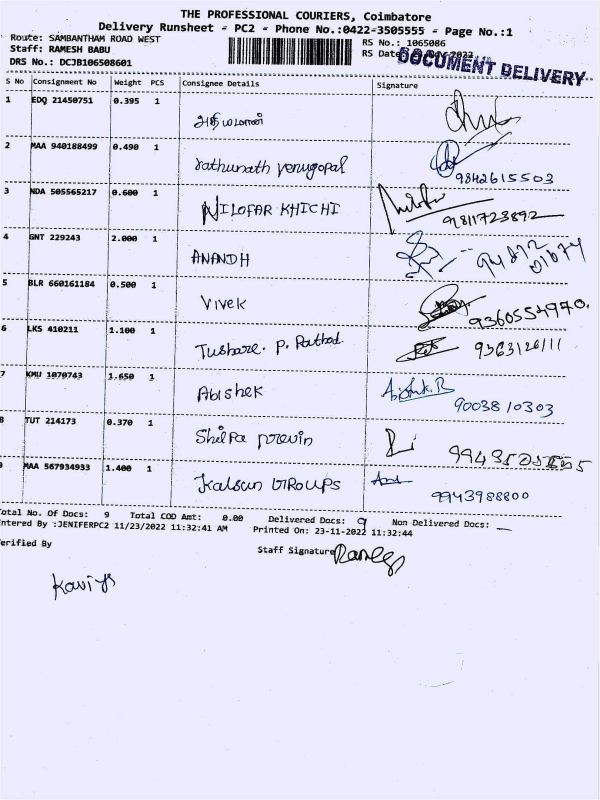 THE PROFESSIONAL COURIERS, Coimbatore
Delivery Runsheet - PC2 - Phone No.:0422-3505555 - Page No.:1
Route: SAMBANTHAM ROAD WEST
RS No.: 1065086
Staff: RAMESH BABU
RS Date
DOCUMENT DELIVERY
DRS No.: DCJB106508601
S No Consignment No Weight PCS Consignee Details Signature
1 EDQ 21450751 0.395 1
அதியமான்
2 MAA 940188499 0.490 1
venugopal
9842615503
3 NDA 505565217 0.600 1
NILOFAR KHICHI
9811723892
4 GNT 229243 2.000 1
ANANDH
5 BLR 660161184 0.500 1
Vivek
9360554970.
6 LKS 410211 1.100 1
Tushare. P. Rathod
7 KMU 1070743 1.650 1
Abishek
9003810303
8 TUT 214173 0.370 1
Shilpa
9 MAA 567934933 1.400 1
GROUPS
9943988800
Total No. Of Docs: 9 Total COD Amt: 0.00 Delivered Docs: 9 Non Delivered Docs: —
Entered By :JENIFERPC2 11/23/2022 11:32:41 AM Printed On: 23-11-2022 11:32:44
Verified By
Staff Signature